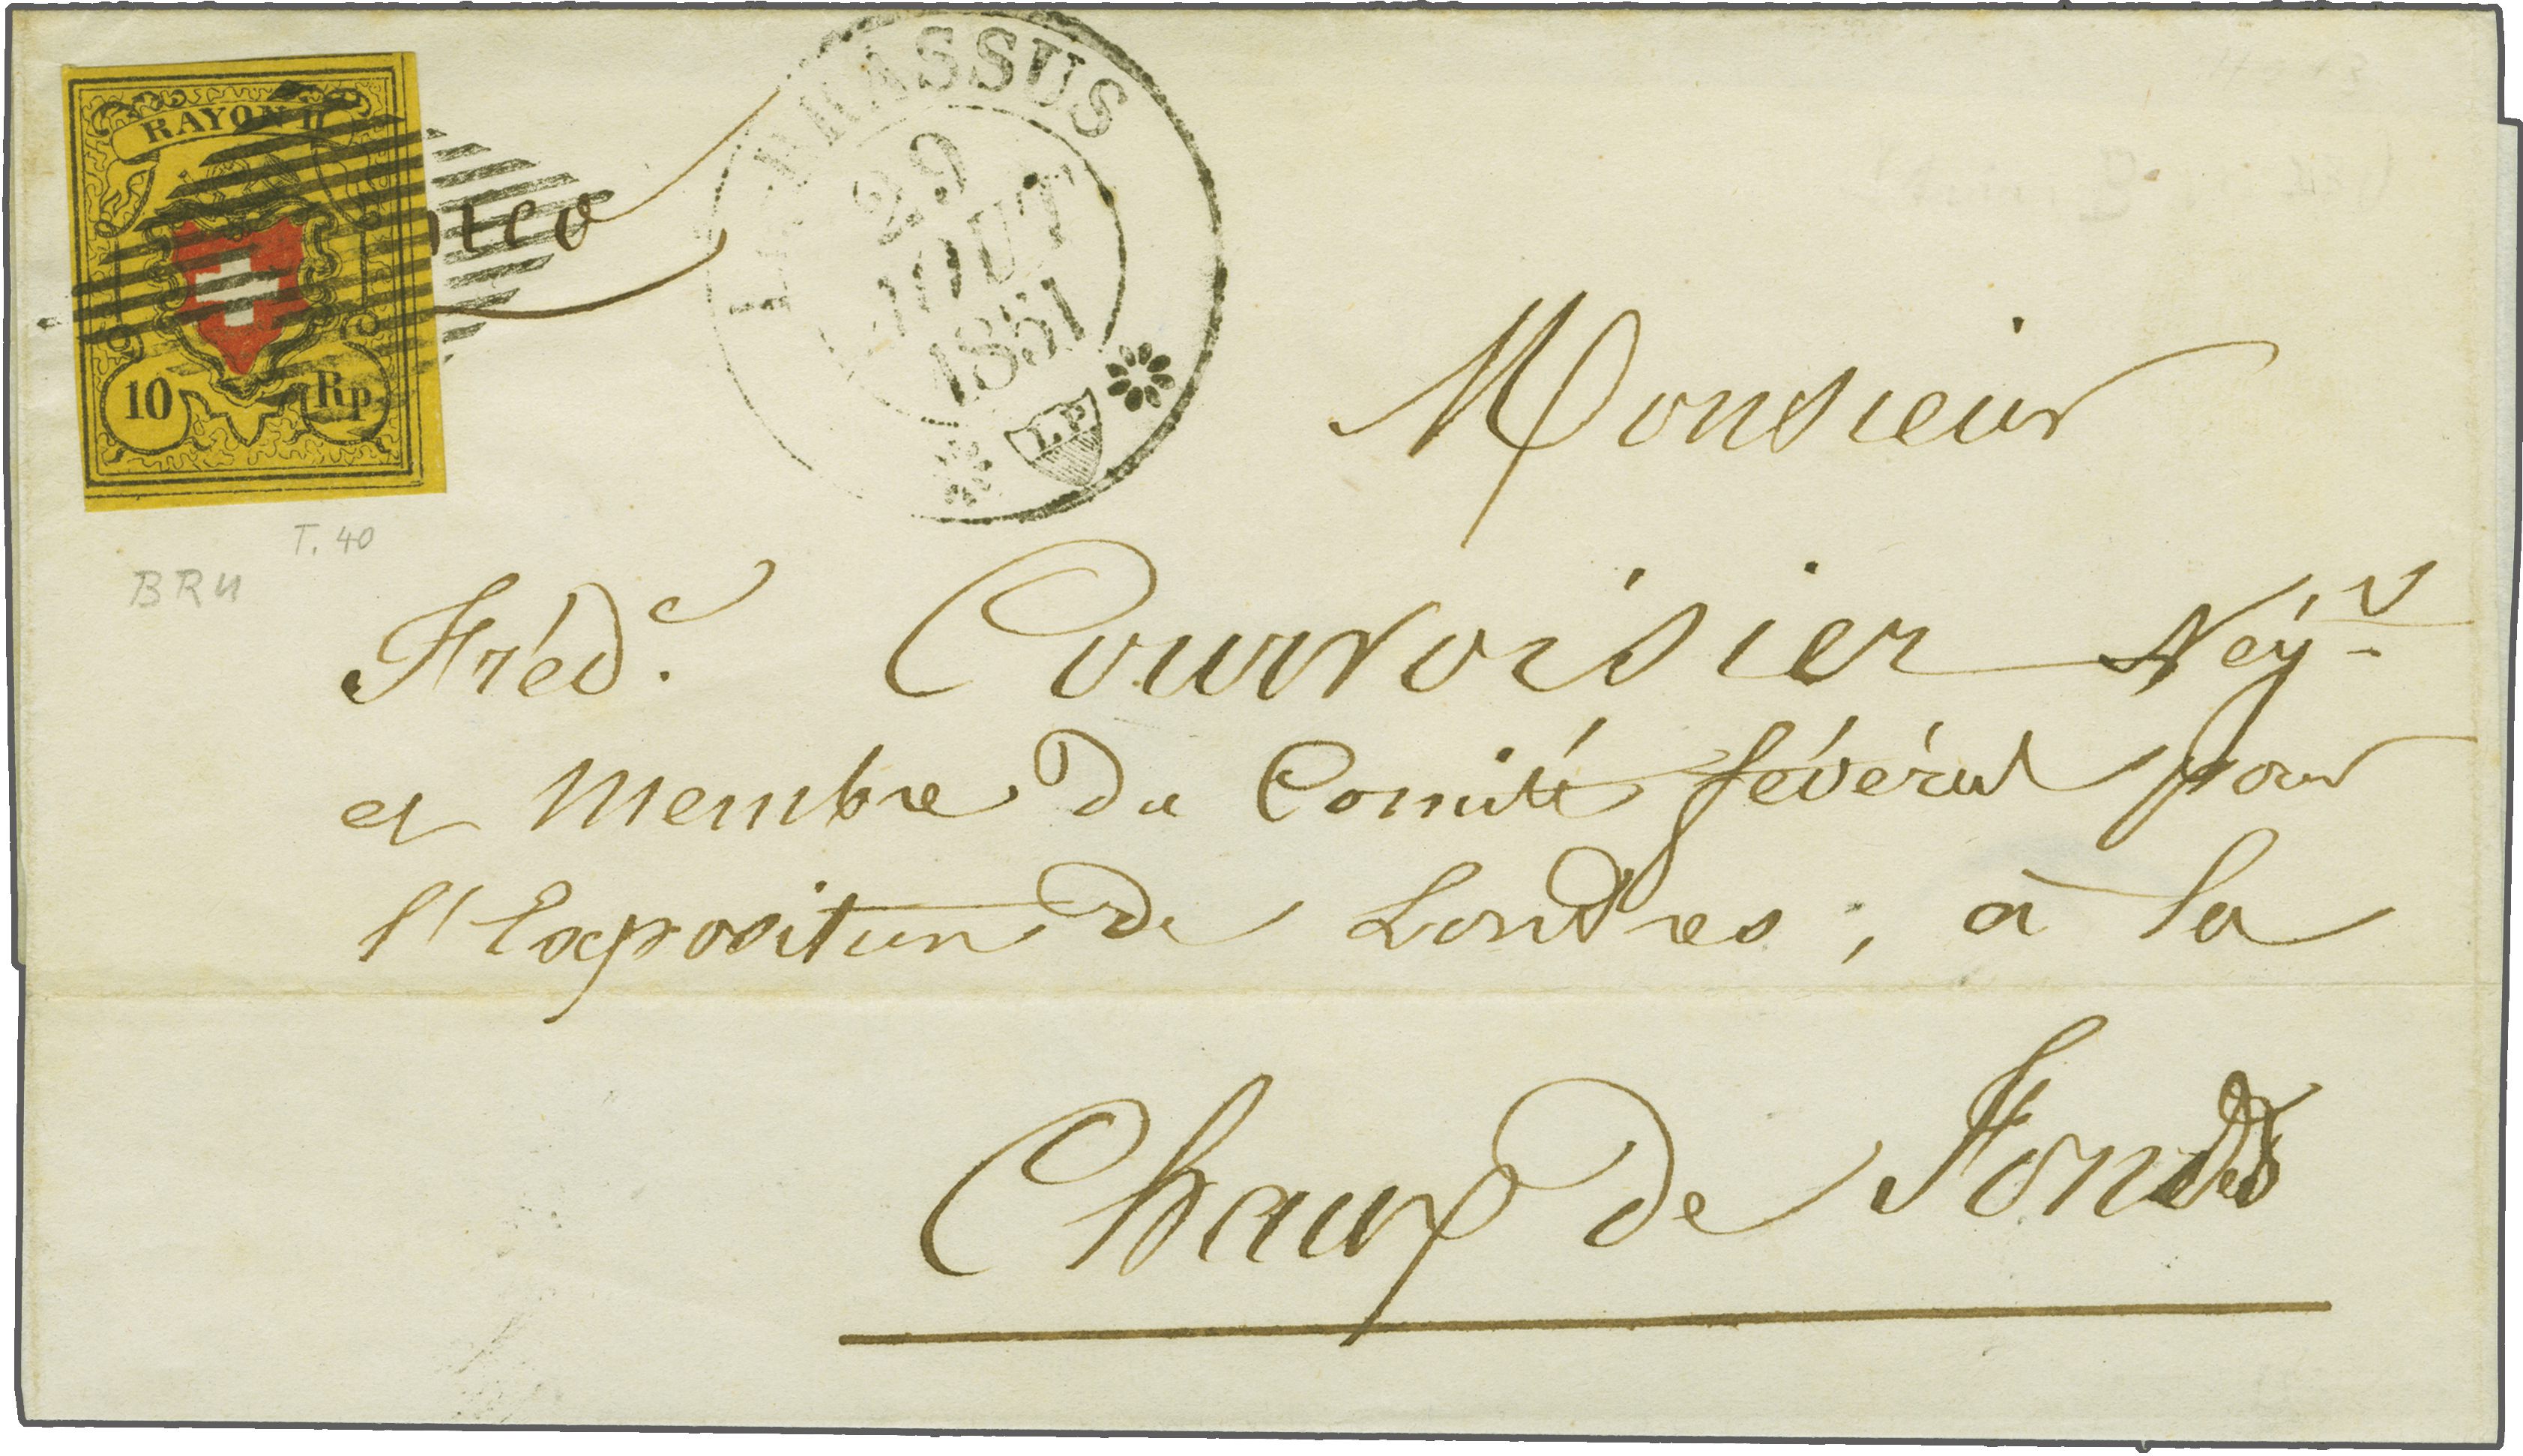 RAYON II
10 Rp.
LE BRASSUS
29
AOUT
1851
L.P.
T. 40
BRU
Monsieur
Fréd.c Courvoisier Nég.
et Membre du Comité fédéral pour
l'Exposition de Londres, à la
Chaux de Fonds